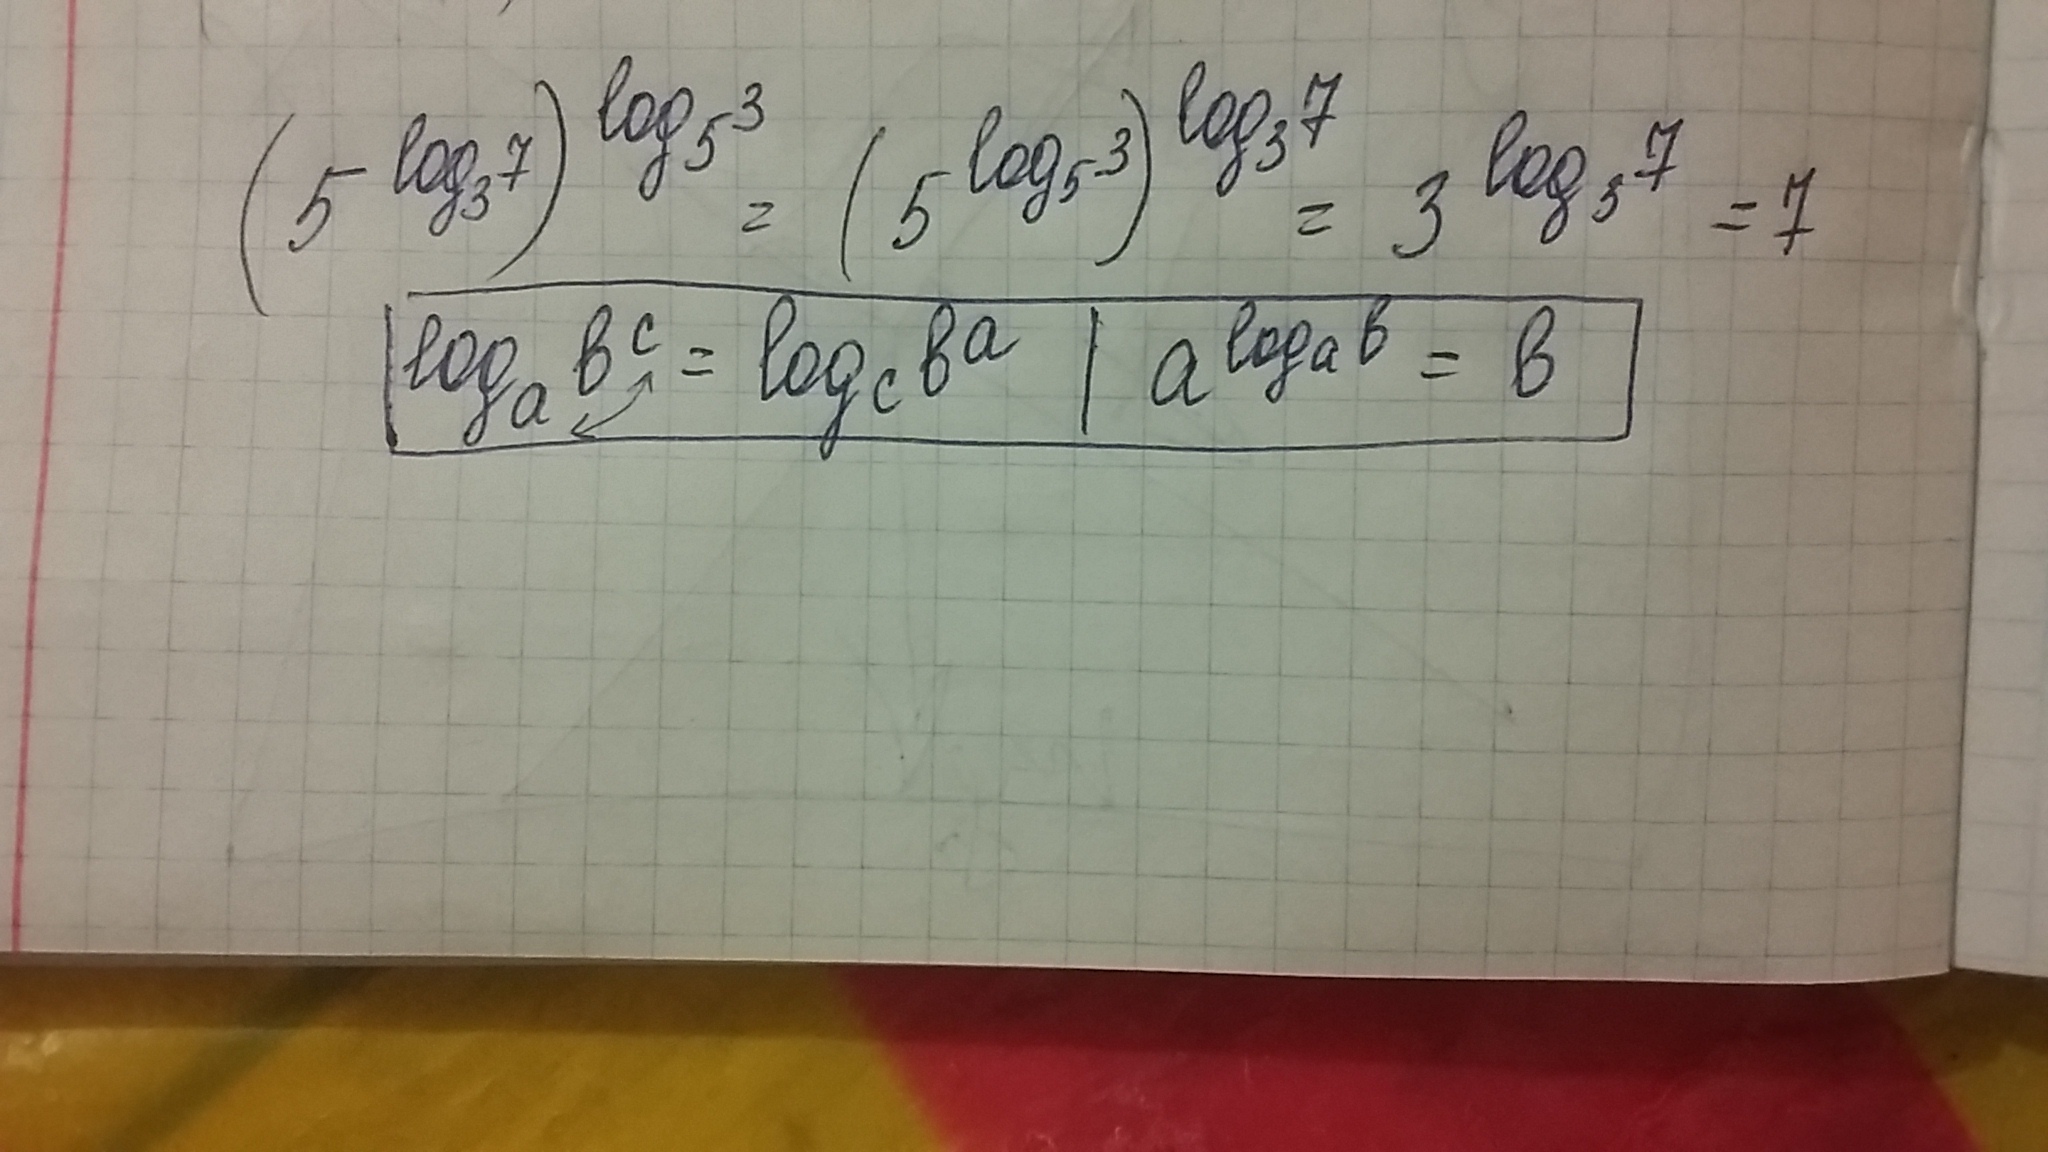 (5^{log_3 7})^{log_5 3} = (5^{log_5 3})^{log_3 7} = 3^{log_3 7} = 7
log_a b^c = log_c b^a | a^{log_a b} = b